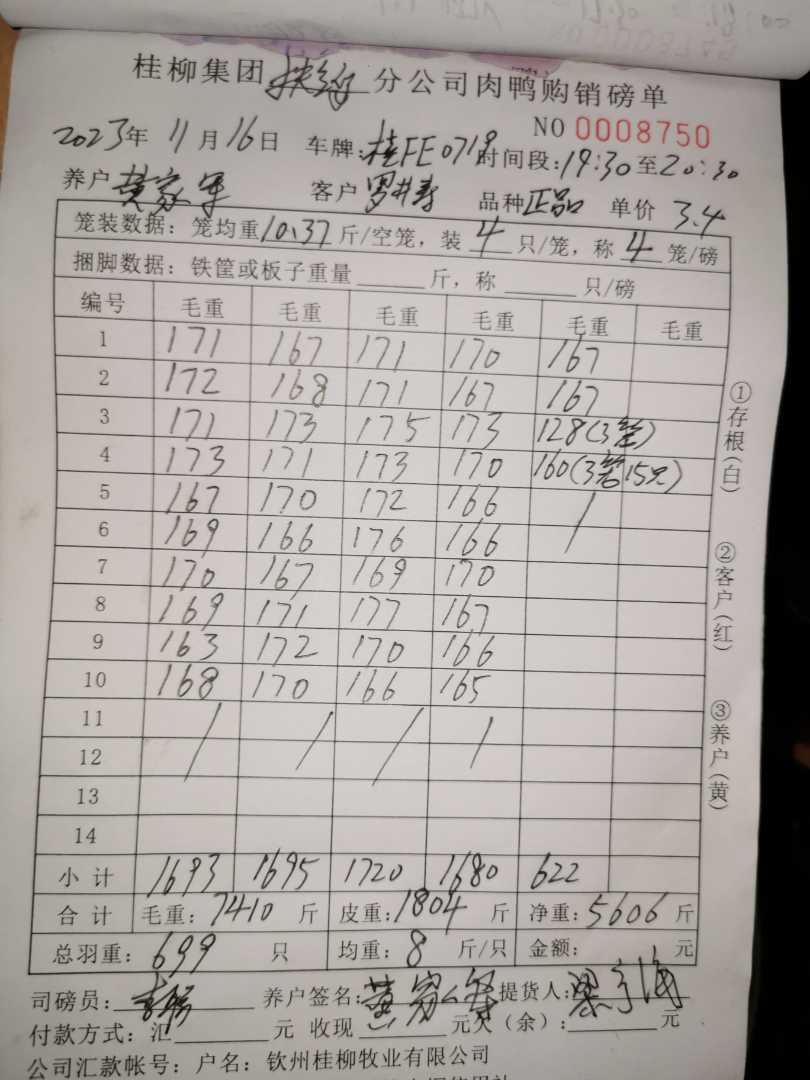 桂柳集团扶绥分公司肉鸭购销磅单
NO 0008750
2023年 11月16日 车牌:桂FE0719 时间段:19:30至20:30
养户 黄家军 客户 罗井寿 品种正品 单价 3.4
笼装数据：笼均重10.37斤/空笼，装 4 只/笼，称 4 笼/磅
捆脚数据：铁筐或板子重量 斤，称 只/磅
编号 毛重 毛重 毛重 毛重 毛重 毛重
1 171 167 171 170 167
2 172 168 171 167 167
3 171 173 175 173 128(3笼)
4 173 171 173 170 160(3笼15只)
5 167 170 172 166 /
6 169 166 176 166
7 170 167 169 170
8 169 171 177 167
9 163 172 170 166
10 168 170 166 165
11 / / / /
12
13
14
小计 1693 1695 1720 1680 622
合计 毛重：7410 斤 皮重：1804 斤 净重：5606 斤
总羽重：699 只 均重：8 斤/只 金额： 元
司磅员： 养户签名：黄家军 提货人：
付款方式：汇 元 收现 元欠（余）： 元
公司汇款帐号：户名：钦州桂柳牧业有限公司
①存根(白)
②客户(红)
③养户(黄)